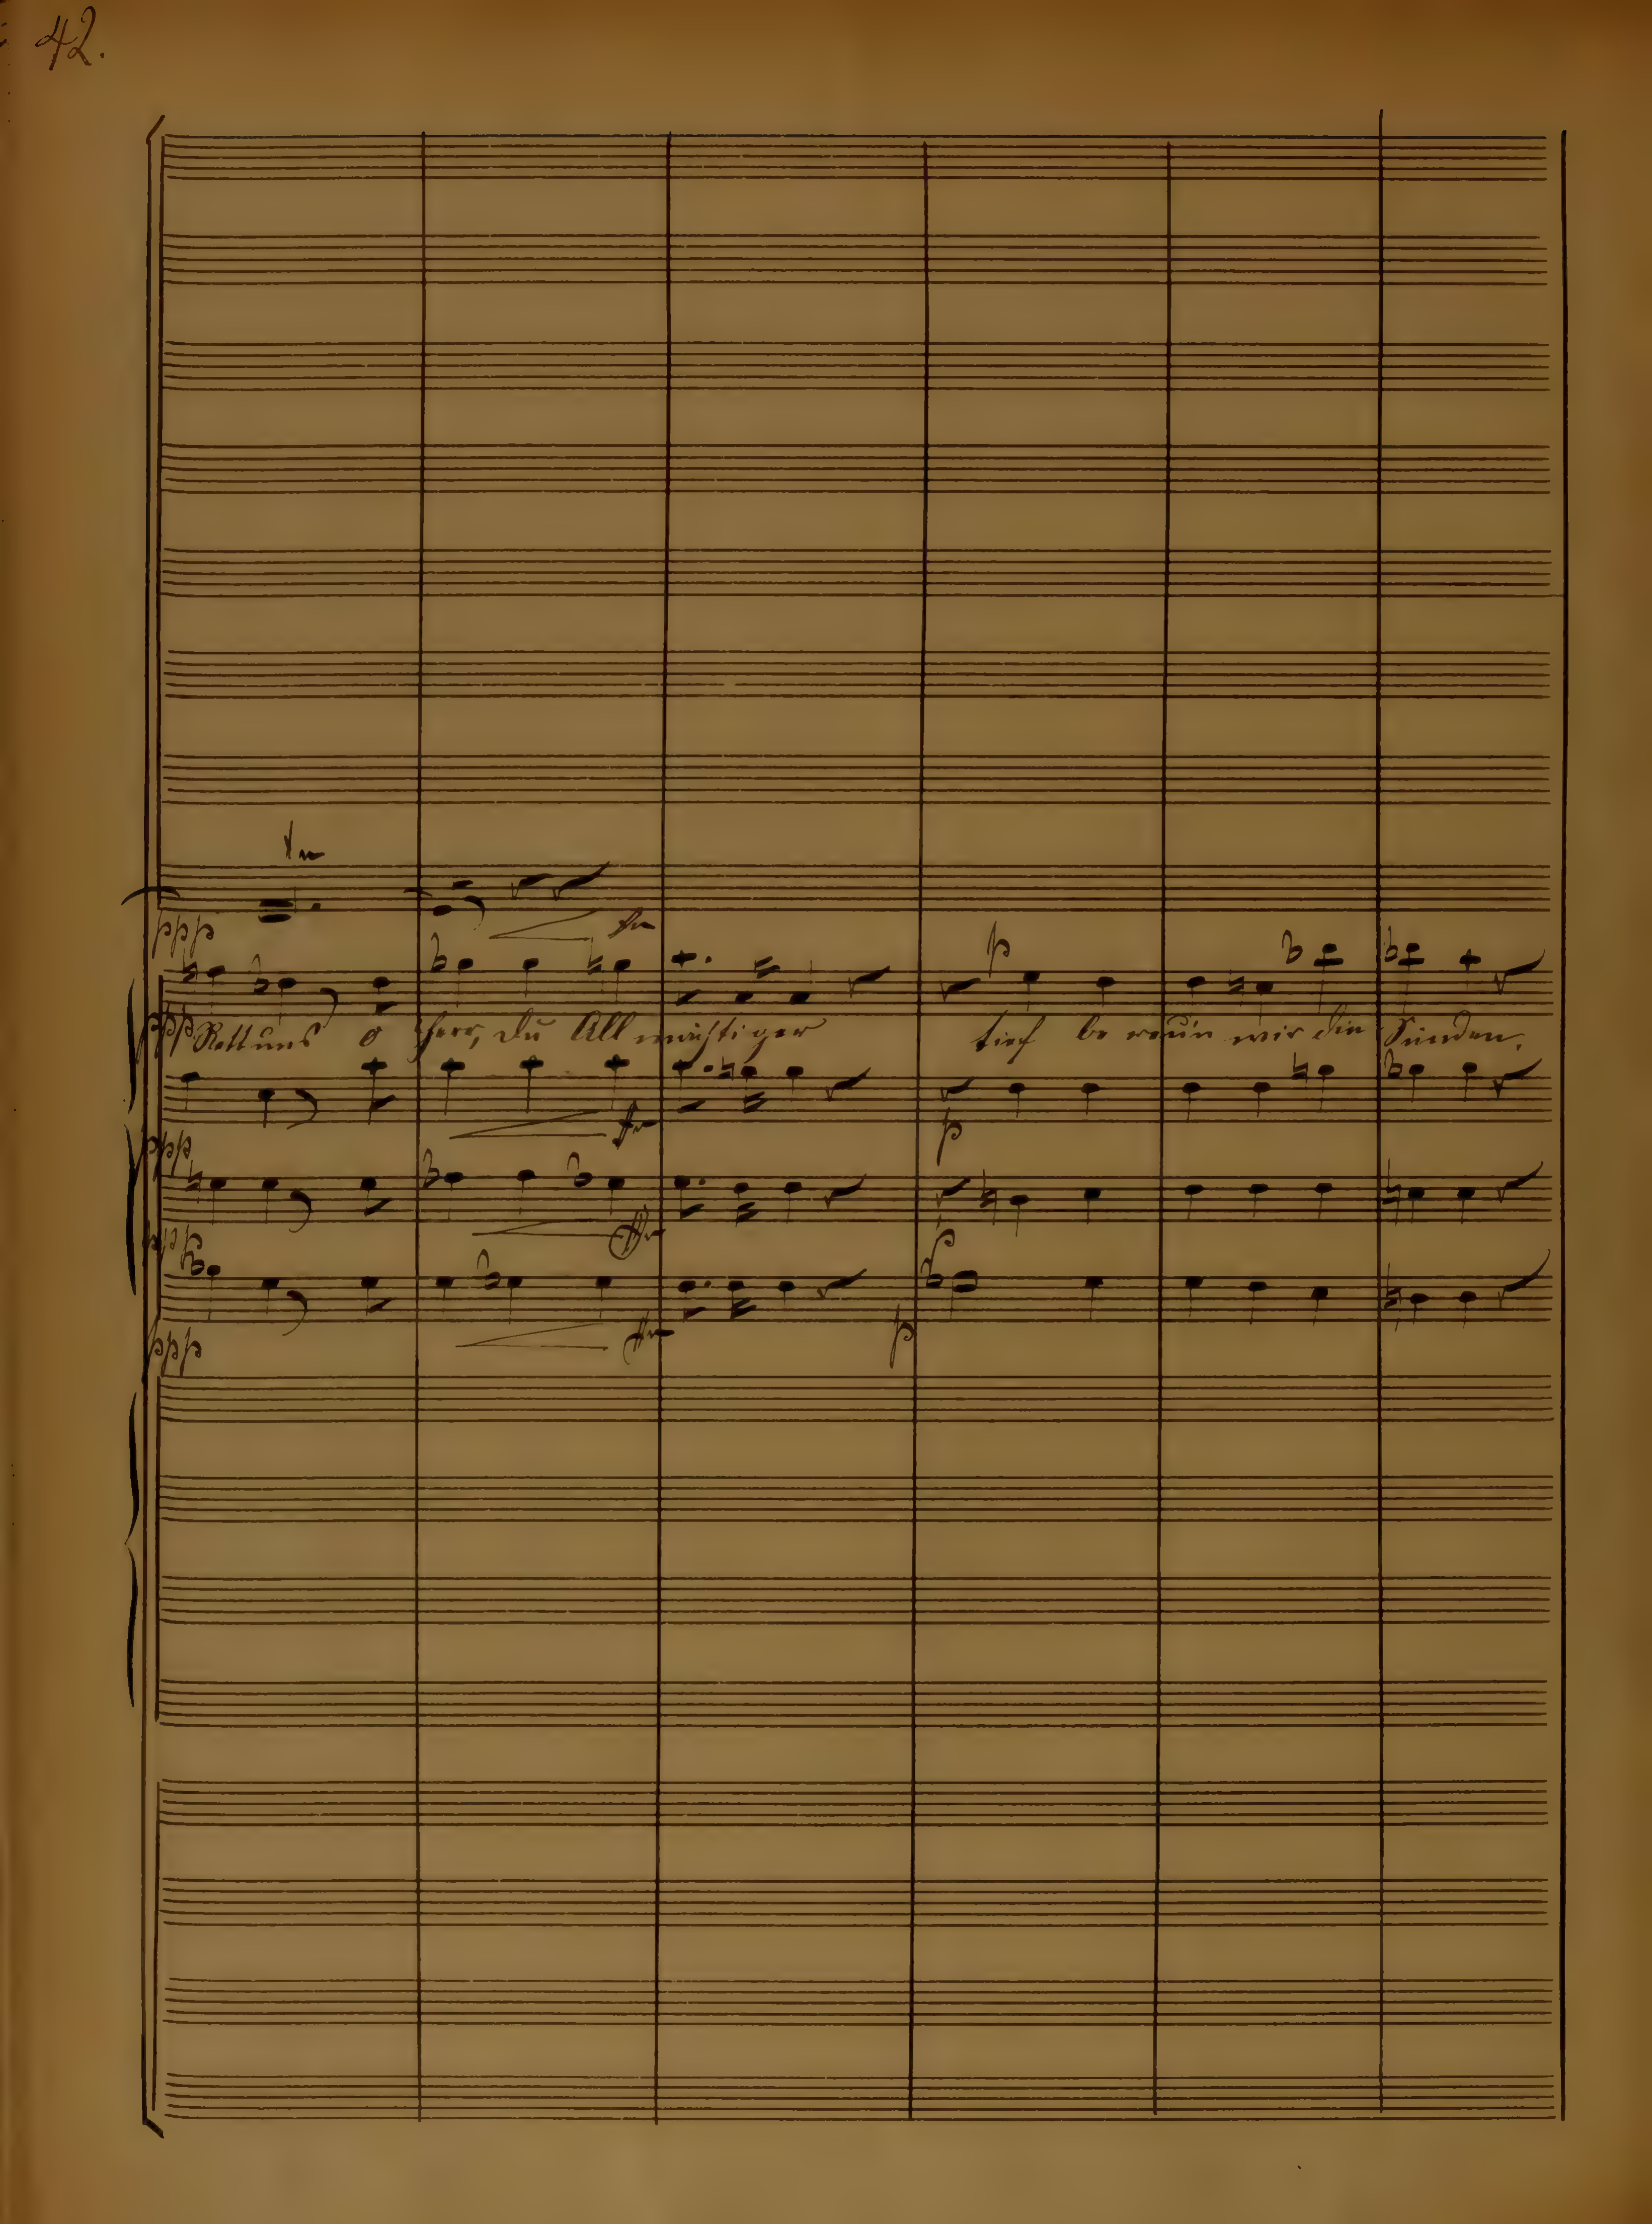 42.
ppp
p
ppp Rett uns o Herr, du All mächtiger tief be reu'n wir die Sünden.
p
ppp
ppp
p
ppp
p